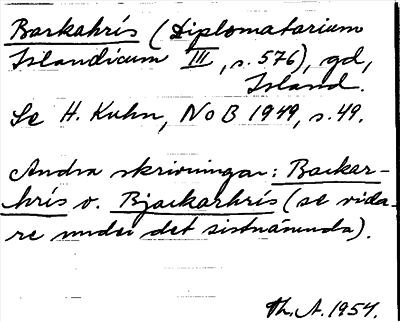 Barkahrís (Diplomatarium
Islandicum III, s. 576), gd,
Island.
Se H. Kuhn, NoB 1949, s. 49.
Andra skrivningar: Backar-
hrís o. Bjackarhrís (se vida-
re under det sistnämnda).
Th. A. 1954.